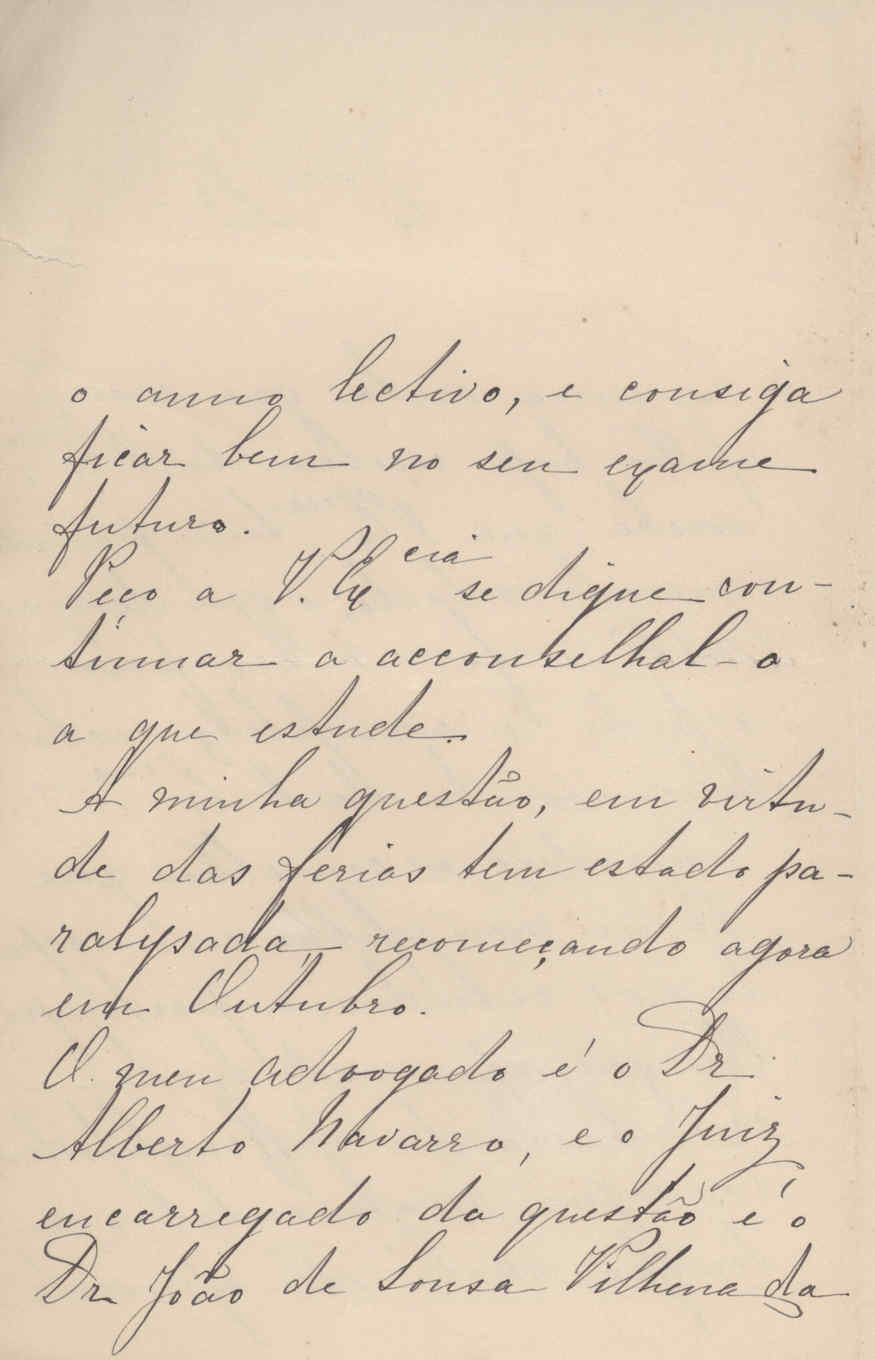 o anno lectivo, e consiga
ficar bem no seu exame
futuro.
Peço a V. Ex.cia se digne con-
tinuar a acconselhal-o
a que estude.
A minha questão, em virtu-
de das ferias tem estado pa-
ralysada, recomeçando agora
em Outubro.
O meu advogado é o Dr.
Alberto Navarro, e o Juiz
encarregado da questão é o
Dr. João de Sousa Vilhena da